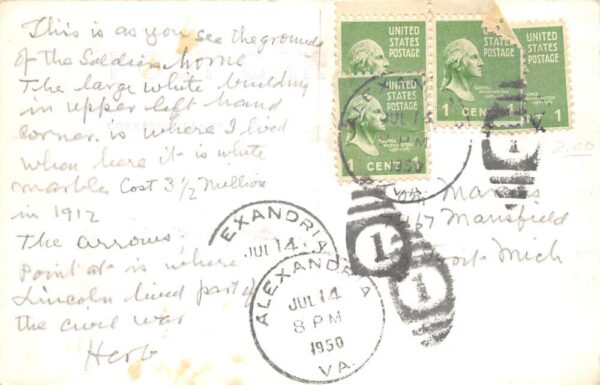 This is as you see the grounds
of the Soldiers home
The large white building
in upper left hand
corner. is where I lived
when here it is white
marble Cost 3 1/2 Million
in 1912
The arrows
Point at is where
Lincoln lived part of
the civil war
Herb
UNITED
STATES
POSTAGE
UNITED
STATES
POSTAGE
GEORGE
WASHINGTON
1 CENT 1
UNITED
STATES
POSTAGE
GEORGE
WASHINGTON
CENT 1
JUL 14
PM
1950
VA.
2.00
Mansfield
Mich
EXANDRIA
JUL 14
ALEXANDRIA
JUL 14
8 PM
1950
VA.
1
1
1